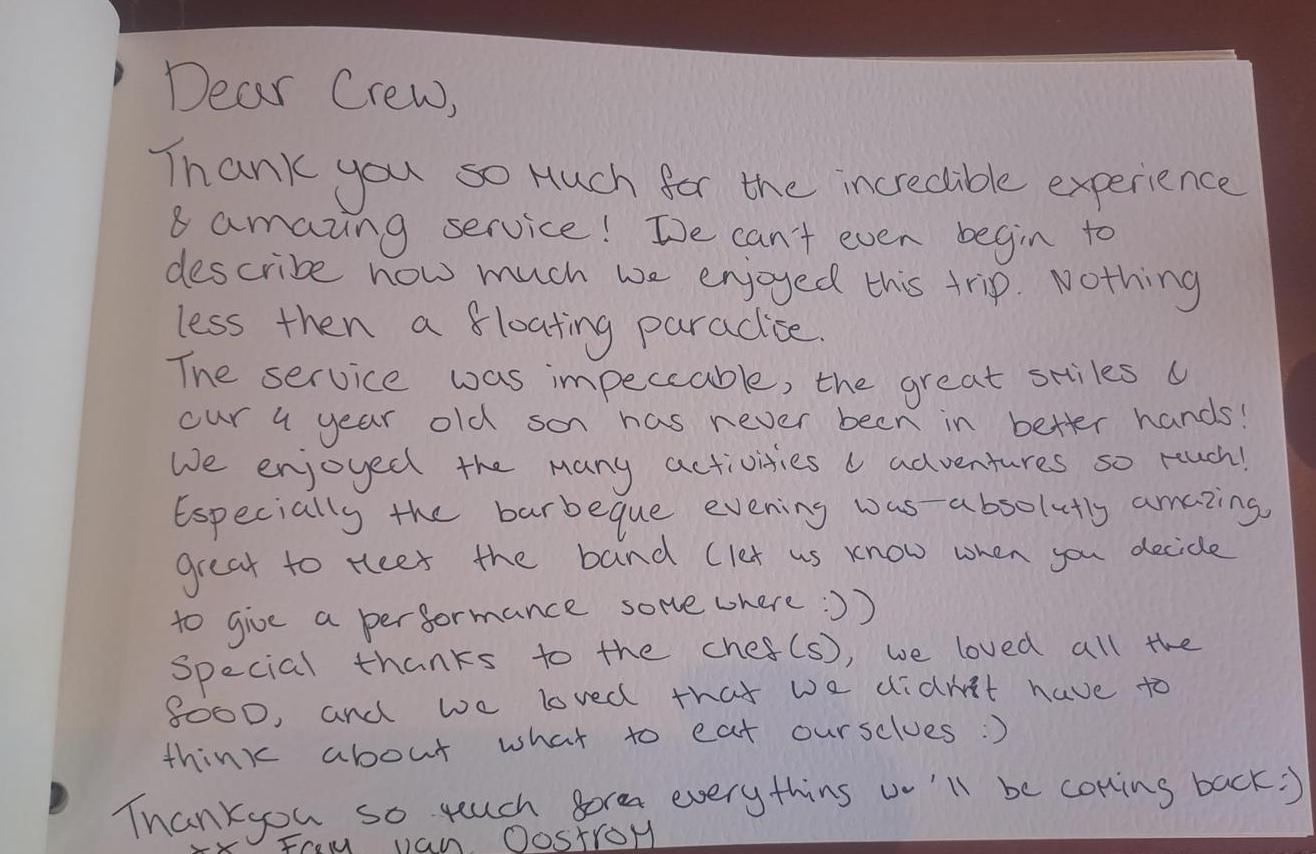 Dear Crew,
Thank you so much for the incredible experience
& amazing service! We can't even begin to
describe how much we enjoyed this trip. Nothing
less then a floating paradise.
The service was impeccable, the great smiles &
our 4 year old son has never been in better hands!
We enjoyed the many activities & adventures so much!
Especially the barbeque evening was absolutly amazing,
great to meet the band (let us know when you decide
to give a performance somewhere :))
Special thanks to the chef(s), we loved all the
FOOD, and we loved that we didn't have to
think about what to eat ourselves :)
Thankyou so much for everything we'll be coming back :)
xx Fam van Oostrom